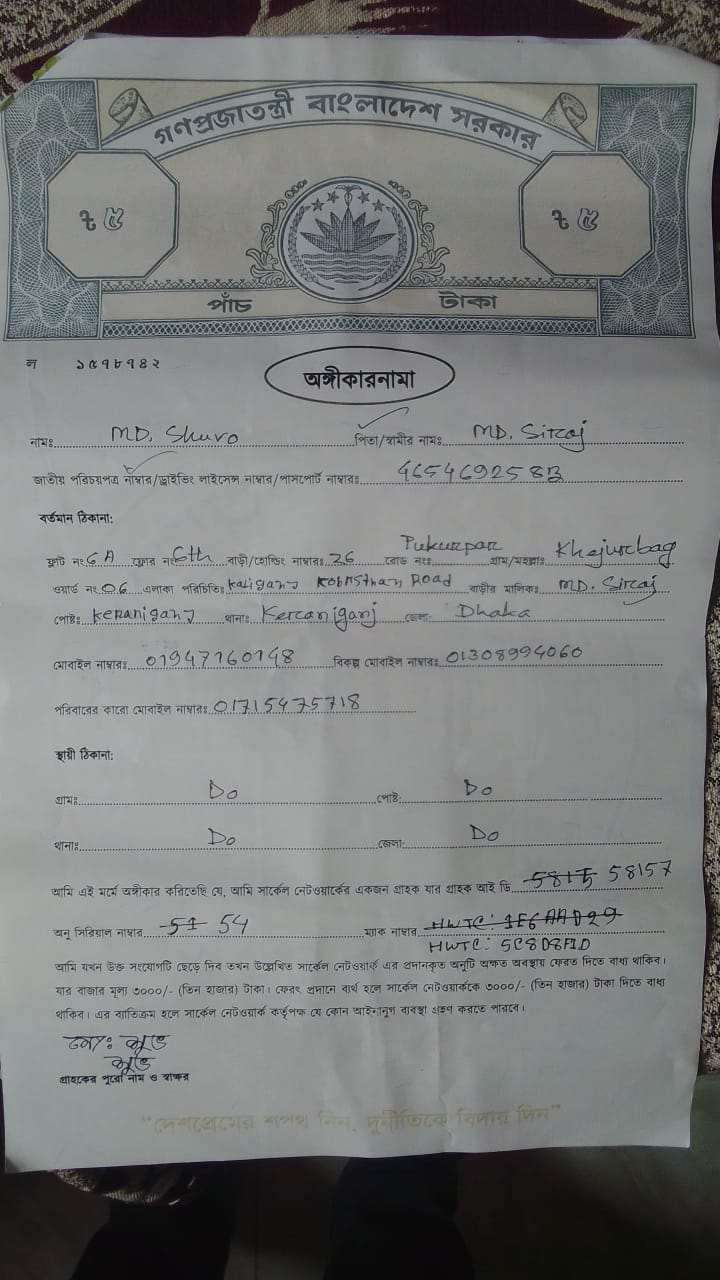 গণপ্রজাতন্ত্রী বাংলাদেশ সরকার
৳ ৫ ৳ ৫
পাঁচ টাকা
ন ১৫৭৮৭৪২
অঙ্গীকারনামা
নামঃ MD. Shuvo পিতা/স্বামীর নামঃ MD. Siraj
জাতীয় পরিচয়পত্র নাম্বার/ড্রাইভিং লাইসেন্স নাম্বার/পাসপোর্ট নাম্বারঃ
বর্তমান ঠিকানা:
ফ্লাট নং 6A ফ্লোর নং 6th বাড়ী/হোল্ডিং নাম্বারঃ 26 রোড নংঃ Pukurpar গ্রাম/মহল্লাঃ Khejurbag
ওয়ার্ড নং 06 এলাকা পরিচিতিঃ Kaliganj Kobristhan Road বাড়ীর মালিকঃ MD. Siraj
পোষ্টঃ KeRaniganj থানাঃ Keraniganj জেলাঃ Dhaka
মোবাইল নাম্বারঃ 01947760748 বিকল্প মোবাইল নাম্বারঃ 01308994060
পরিবারের কারো মোবাইল নাম্বারঃ 01715475718
স্থায়ী ঠিকানা:
গ্রামঃ Do পোষ্ট: Do
থানাঃ Do জেলা: Do
আমি এই মর্মে অঙ্গীকার করিতেছি যে, আমি সার্কেল নেটওয়ার্কের একজন গ্রাহক যার গ্রাহক আই ডি 58157
অনু সিরিয়াল নাম্বার 54 ম্যাক নাম্বার
HWTC: 5C8D8F1D
আমি যখন উক্ত সংযোগটি ছেড়ে দিব তখন উল্লেখিত সার্কেল নেটওয়ার্ক এর প্রদানকৃত অনুটি অক্ষত অবস্থায় ফেরত দিতে বাধ্য থাকিব।
যার বাজার মূল্য ৩০০০/- (তিন হাজার) টাকা। ফেরৎ প্রদানে ব্যর্থ হলে সার্কেল নেটওয়ার্ককে ৩০০০/- (তিন হাজার) টাকা দিতে বাধ্য
থাকিব। এর ব্যতিক্রম হলে সার্কেল নেটওয়ার্ক কর্তৃপক্ষ যে কোন আইনানুগ ব্যবস্থা গ্রহণ করতে পারবে।
মোঃ শুভ
শুভ
গ্রাহকের পুরো নাম ও স্বাক্ষর
"দেশপ্রেমের শপথ নিন, দুর্নীতিকে বিদায় দিন"